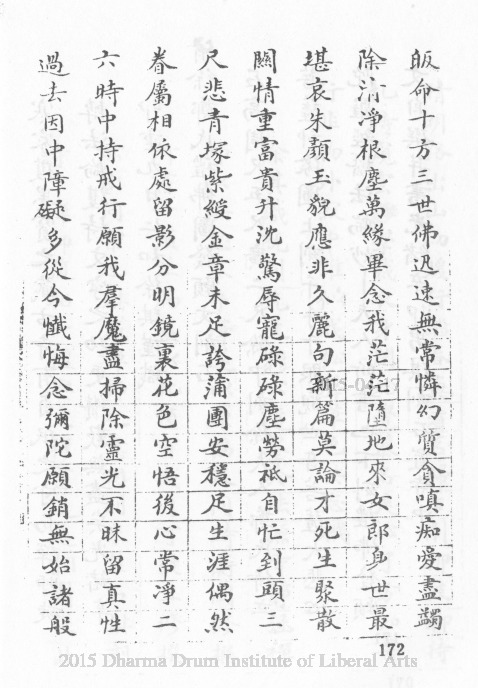 皈命十方三世佛迅速無常憐幻質貪嗔痴愛盡蠲
除清淨根塵萬緣畢念我茫茫墮地來女郎身世最
堪哀朱顏玉貌應非久麗句新篇莫論才死生聚散
關情重富貴升沈驚辱寵碌碌塵勞祗自忙到頭三
尺悲青塚紫綬金章未足誇蒲團安穩足生涯偶然
眷屬相依處留影分明鏡裏花色空悟後心常淨二
六時中持戒行願我羣魔盡掃除靈光不昧留真性
過去因中障礙多從今懺悔念彌陀願銷無始諸般
172
2015 Dharma Drum Institute of Liberal Arts